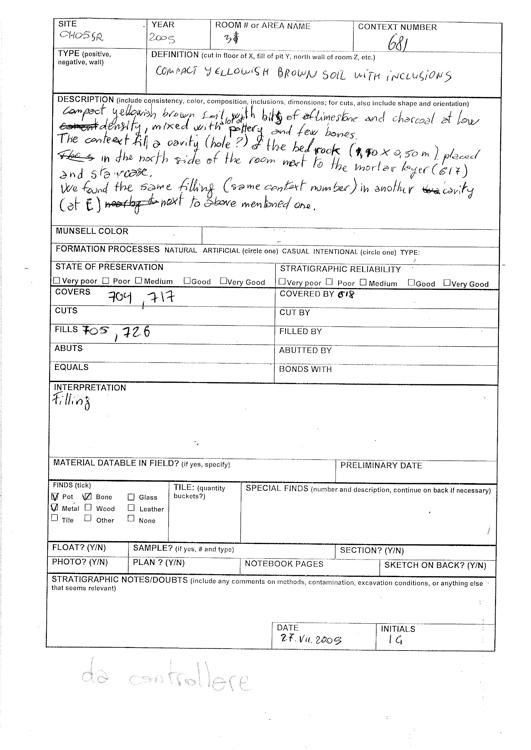 SITE YEAR ROOM # or AREA NAME CONTEXT NUMBER
CHOSSR 2005 681
TYPE (positive, negative, wall) DEFINITION (cut in floor of X, fill of pit Y, north wall of room Z, etc.)
COMPACT YELLOWISH BROWN SOIL WITH INCLUSIONS
DESCRIPTION (include consistency, color, composition, inclusions, dimensions; for cuts, also include shape and orientation)
Compact yellowish brown soil with bits of limestone and charcoal at low
density, mixed with a lot of pottery and few bones.
The context fill a cavity (hole?) of the bed rock (1,90 x 0,50 m) placed
in the north side of the room next to the mortar layer (617)
and staircase.
We found the same filling (same context number) in another cavity
(at E) next to above mentioned one.
MUNSELL COLOR
FORMATION PROCESSES NATURAL ARTIFICIAL (circle one) CASUAL INTENTIONAL (circle one) TYPE:
STATE OF PRESERVATION STRATIGRAPHIC RELIABILITY
Very poor Poor Medium Good Very Good Very poor Poor Medium Good Very Good
COVERS 704, 717 COVERED BY 618
CUTS CUT BY
FILLS 705, 726 FILLED BY
ABUTS ABUTTED BY
EQUALS BONDS WITH
INTERPRETATION
Filling
MATERIAL DATABLE IN FIELD? (if yes, specify) PRELIMINARY DATE
FINDS (tick) TILE: (quantity buckets?) SPECIAL FINDS (number and description, continue on back if necessary)
Pot Bone Glass
Metal Wood Leather
Tile Other None
FLOAT? (Y/N) SAMPLE? (if yes, # and type) SECTION? (Y/N)
PHOTO? (Y/N) PLAN ? (Y/N) NOTEBOOK PAGES SKETCH ON BACK? (Y/N)
STRATIGRAPHIC NOTES/DOUBTS (include any comments on methods, contamination, excavation conditions, or anything else
that seems relevant)
DATE INITIALS
27.VII.2005 IG
da controllare